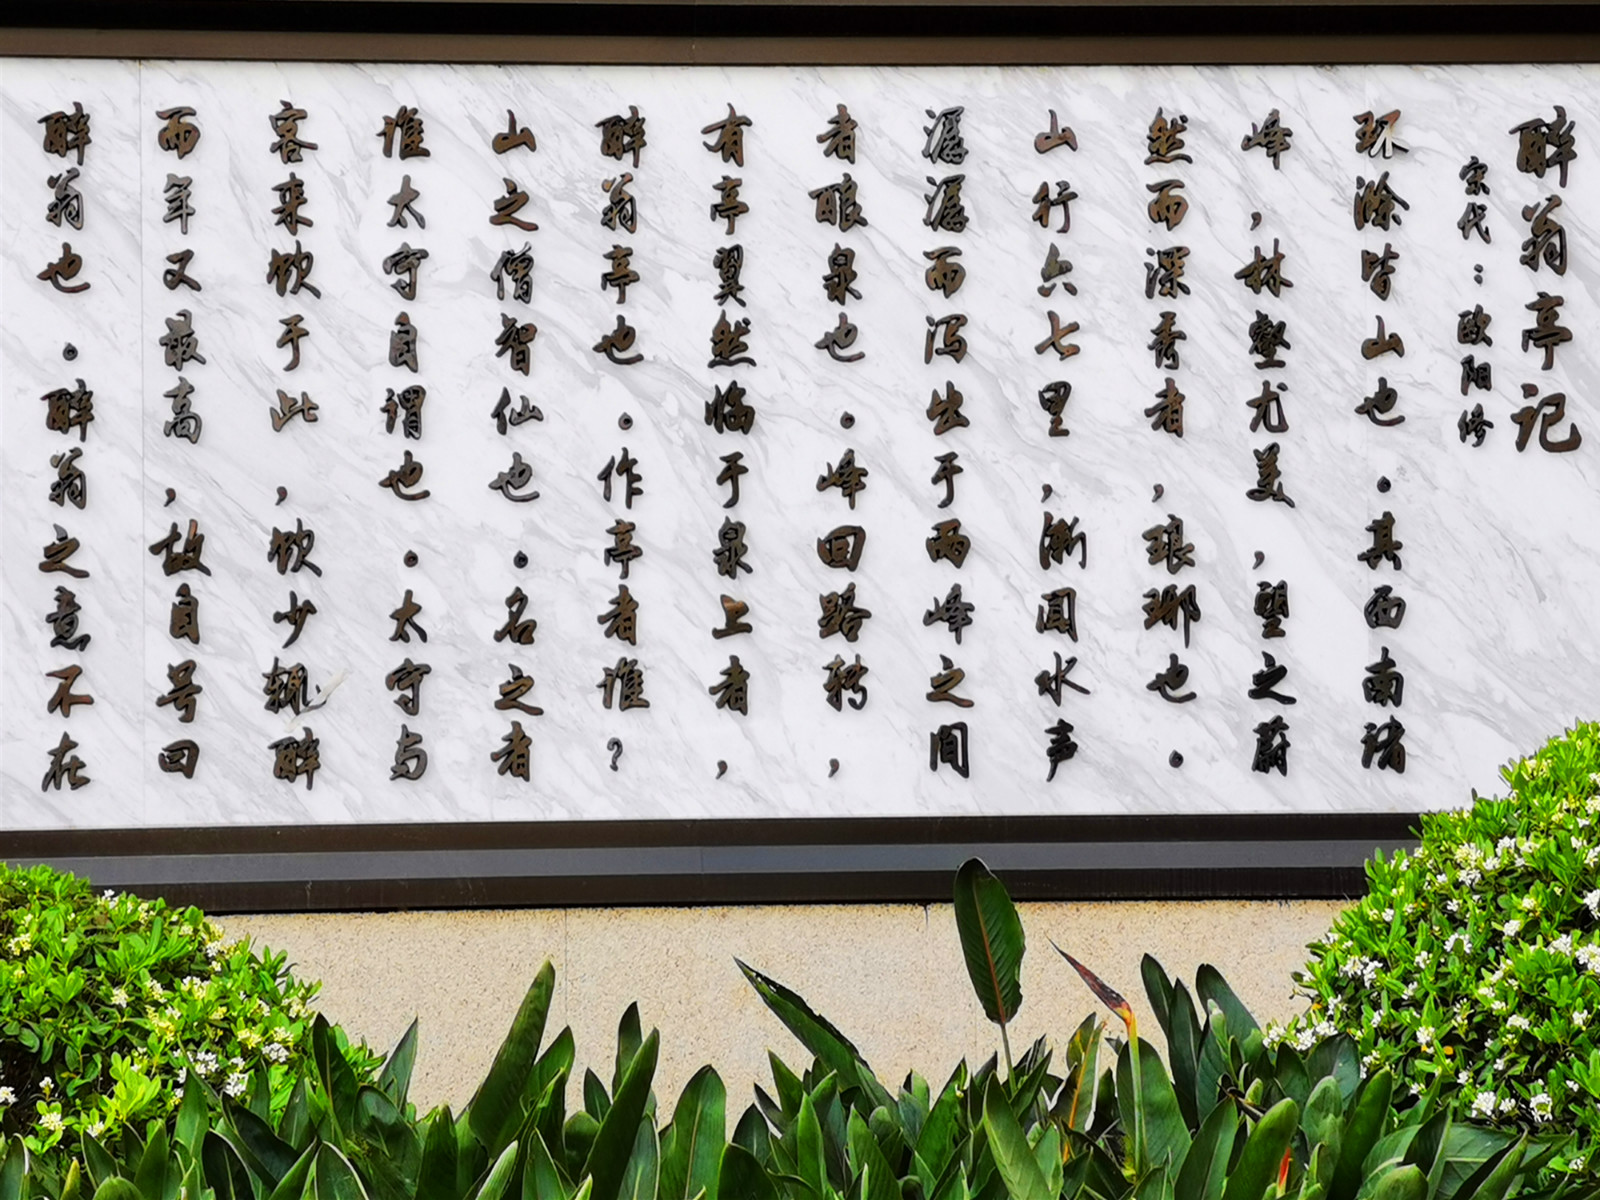 醉翁亭记
宋代：欧阳修
环滁皆山也。其西南诸
峰，林壑尤美，望之蔚
然而深秀者，琅琊也。
山行六七里，渐闻水声
潺潺而泻出于两峰之间
者酿泉也。峰回路转，
有亭翼然临于泉上者，
醉翁亭也。作亭者谁？
山之僧智仙也。名之者
谁太守自谓也。太守与
客来饮于此，饮少辄醉
而年又最高，故自号曰
醉翁也。醉翁之意不在